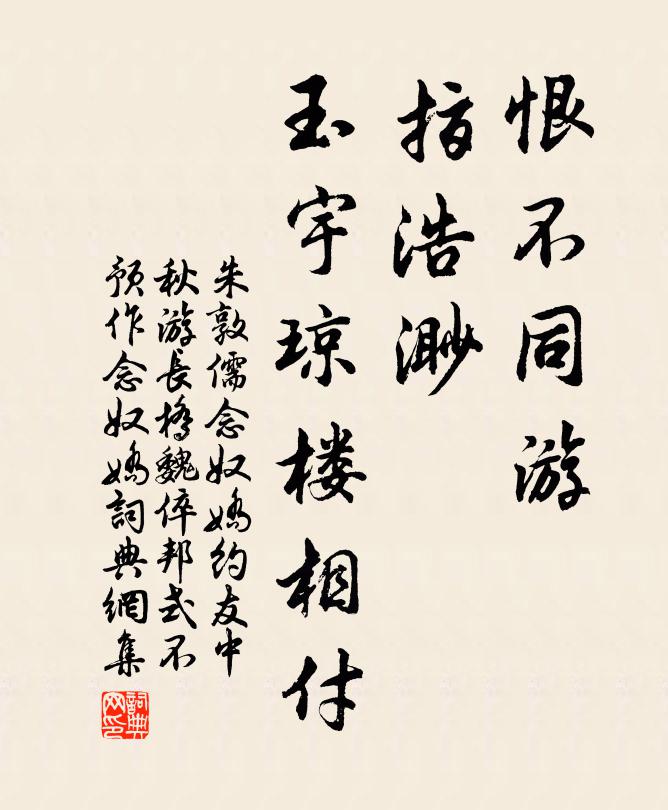 恨不同游
指浩渺
玉宇琼楼相付
朱敦儒念奴嬌约友中
秋游长橋魏倅邦式不
预作念奴嬌詞典網集
詞典网印